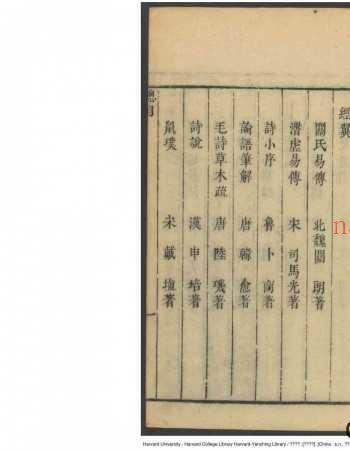 經翼
關氏易傳　北魏關　朗著
潛虛易傳　宋　司馬光著
詩小序　魯　卜　商著
論語筆解　唐　韓　愈著
毛詩草木疏　唐　陸　璣著
詩說　漢　申　培著
鼠璞　宋　戴　埴著
總目
Harvard University - Harvard College Library Harvard-Yenching Library / ????